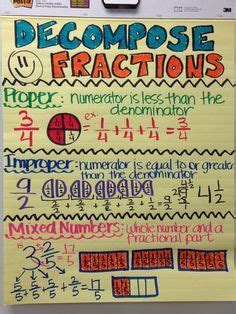 Post-it
DECOMPOSE
FRACTIONS
Proper: numerator is less than the
denominator
3/4 ex. 1/4 + 1/4 + 1/4 = 3/4
Improper: numerator is equal to or greater
than the denominator
9/2 2/2 + 2/2 + 2/2 + 2/2 + 1/2 4 1/2
Mixed Numbers: whole number and a
fractional part
3 2/5 = 17/5
5/5 + 5/5 + 5/5 + 2/5 = 17/5